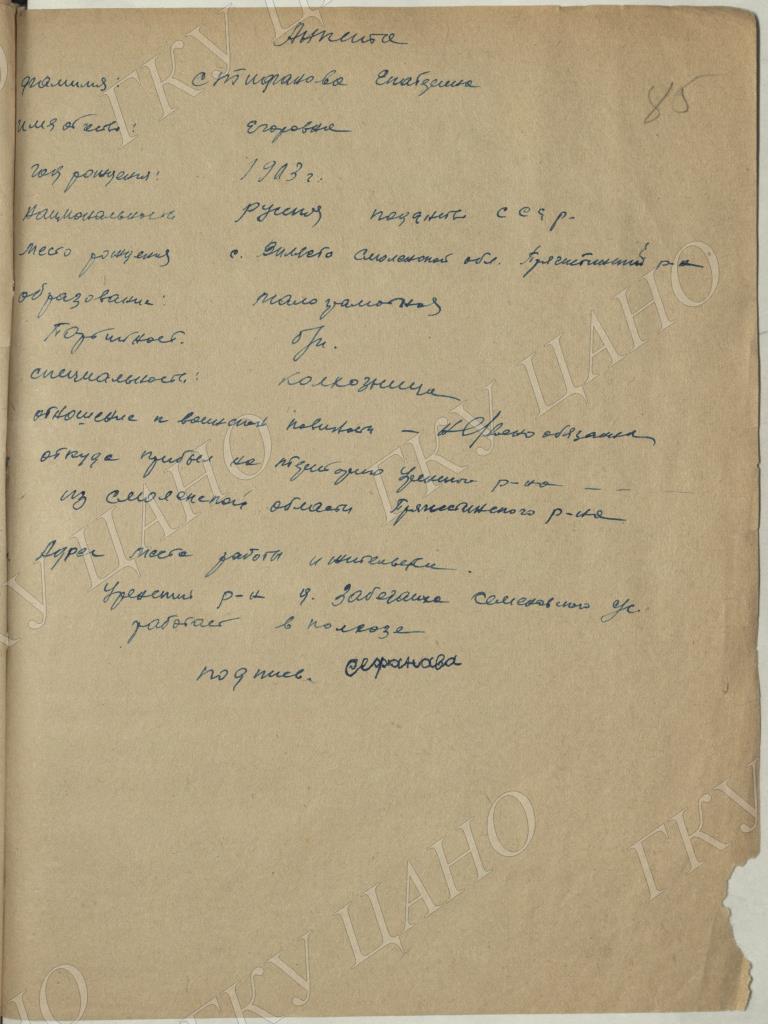 Анкета
85
фамилия: Стифанова Екатерина
имя отчество: Егоровна
год рождения: 1913 г.
национальность русская подданство СССР
место рождения с. Смоленской обл. Пречистинский р-н
образование: малограмотная
Партийност. б/п.
специальность: колхозница
отношение к воинской повиности — не военообязанна
откуда прибыл на територию Уренский р-на — —
из Смоленской области Пречистинского р-на
Адрес места работы и жительства.
Уренский р-н д. Семеновского с/с.
работает в колхозе
подпись. Сефанава
ГКУ ЦАНО